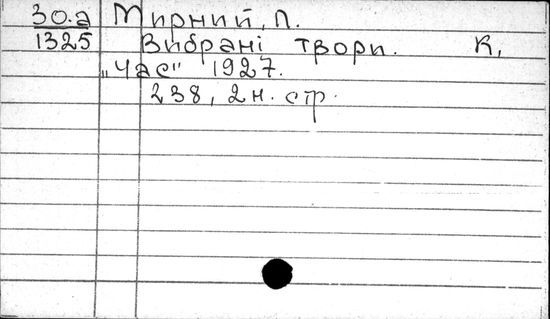 30.а Мирний, П.
1325 Вибрані твори. К.,
"Час" 1927.
238, 2 н. стр.